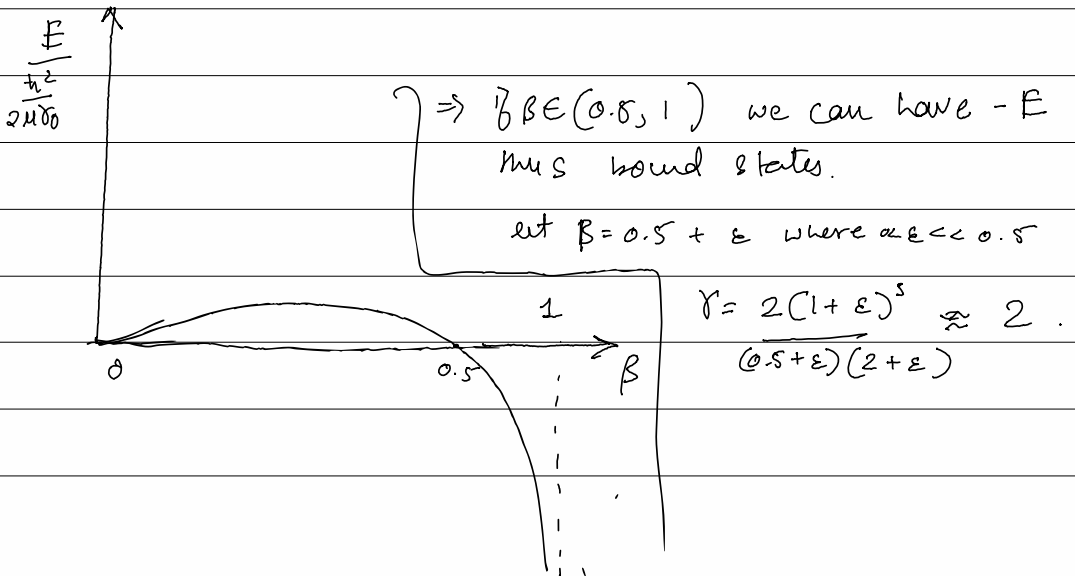 E
ħ²
2μr₀
⇒ if β∈(0.5, 1) we can have - E
thus bound states.
let β = 0.5 + ε where ε << 0.5
1
γ = 2(1+ε)⁵ / (0.5+ε)(2+ε) ≈ 2 .
0
0.5
β